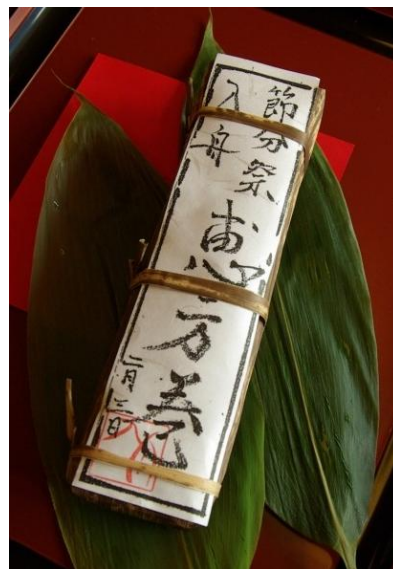 節分祭
入舟
恵方巻
二月三日